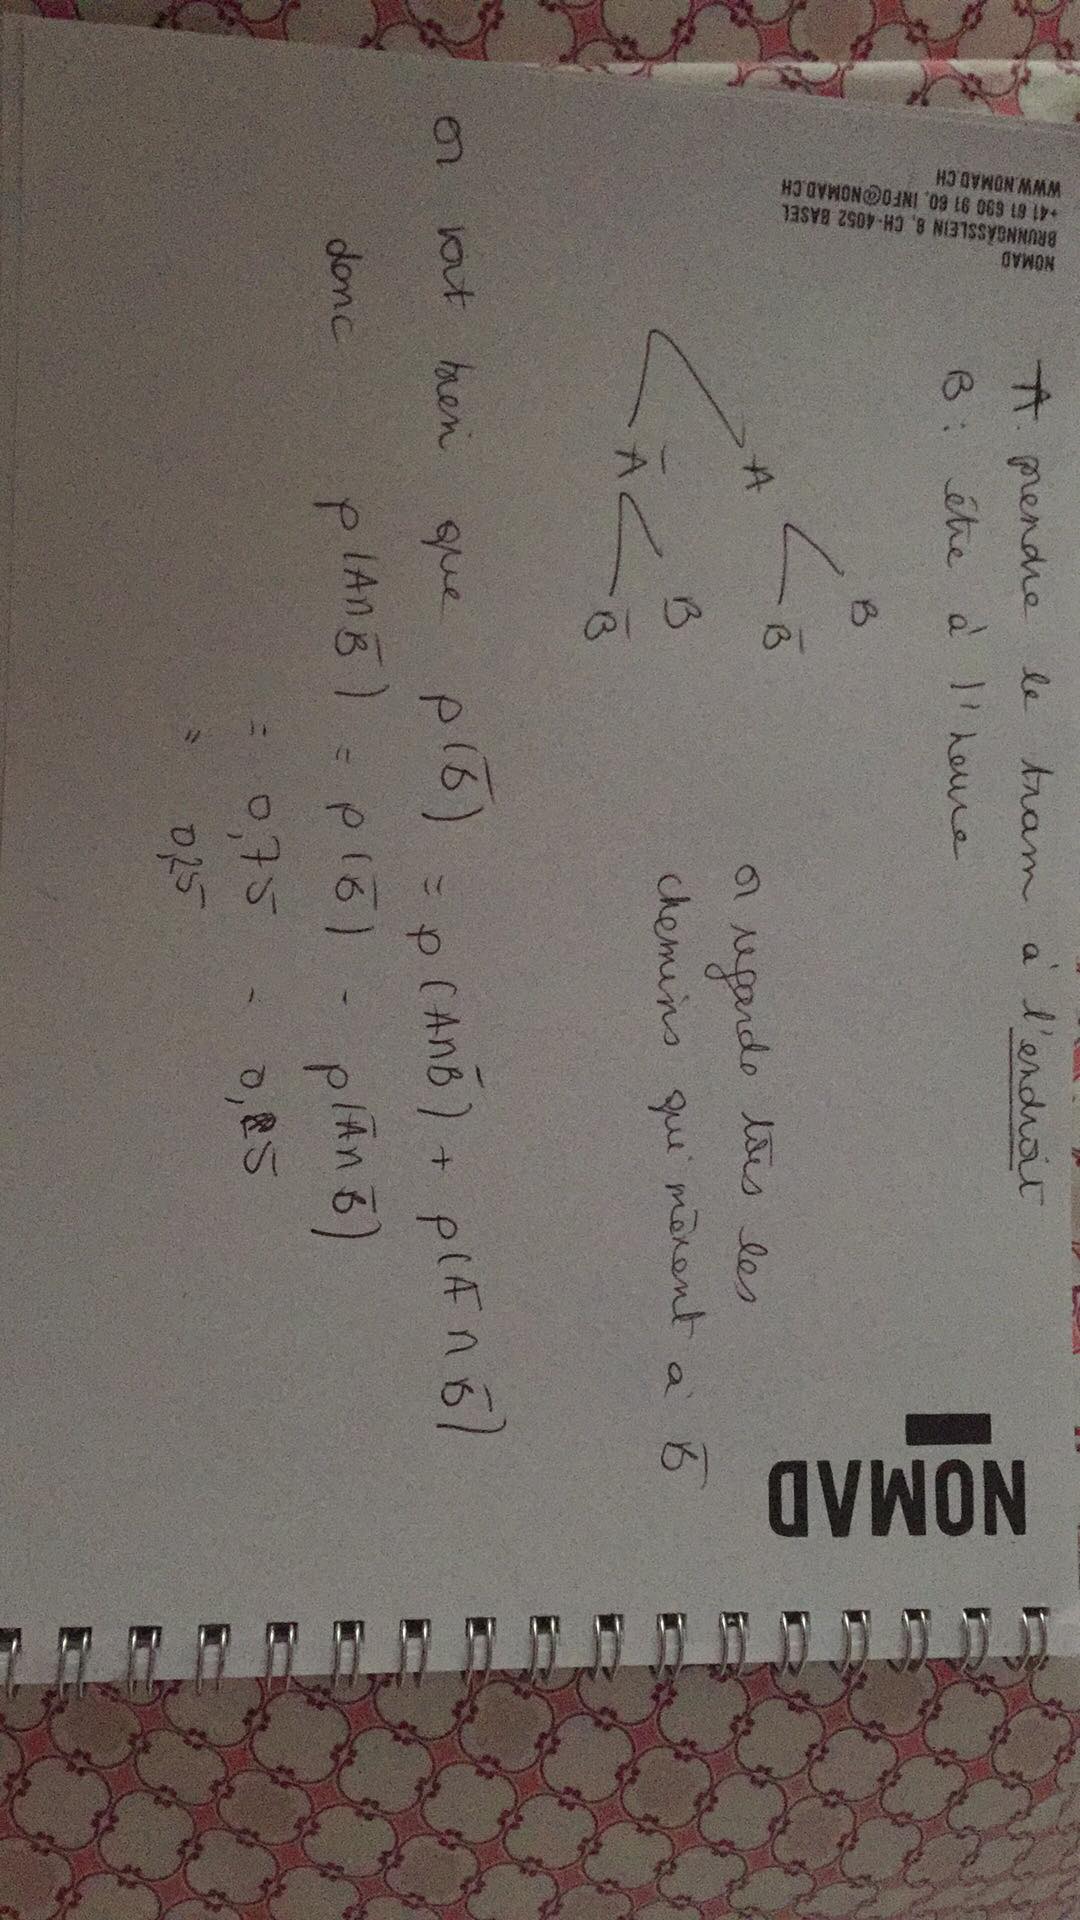 NOMAD
BRUNNGÄSSLEIN 8, CH-4052 BASEL
+41 61 690 91 60, INFO@NOMAD.CH
WWW.NOMAD.CH
NOMAD
A: prendre le tram à l'endroit
B: être à l'heure
A B
B̄
Ā B
B̄
on regarde tous les
chemins qui mènent à B̄
on voit bien que p(B̄) = p(A∩B̄) + p(Ā∩B̄)
donc p(A∩B̄) = p(B̄) - p(Ā∩B̄)
= 0,75 - 0,5
= 0,25